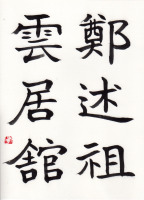 鄭述祖
雲居館